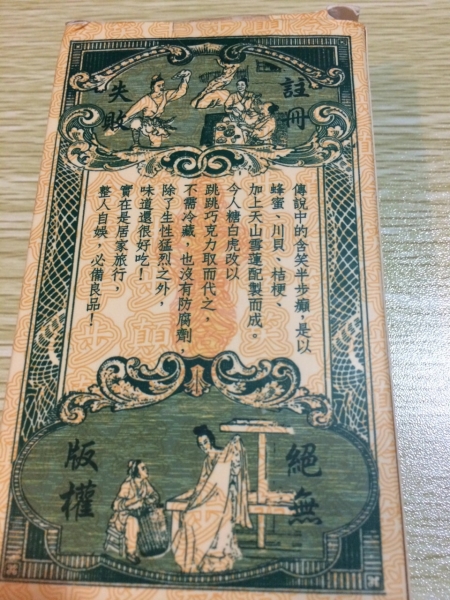 註冊
失敗
傳說中的含笑半步癲，是以
蜂蜜、川貝、桔梗、
加上天山雪蓮配製而成。
今人糖白虎改以
跳跳巧克力取而代之，
不需冷藏，也沒有防腐劑，
除了生性猛烈之外，
味道還很好吃！
實在是居家旅行，
整人自娛，必備良品！
絕無
版權